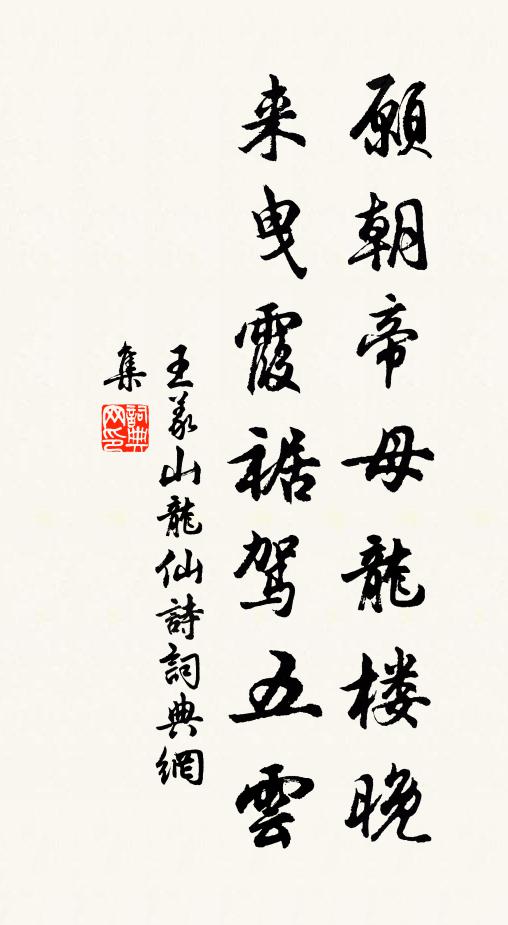 願朝帝母龍楼晚
来曳霞裾駕五雲
王義山龍仙詩詞典網
集
詞典网印